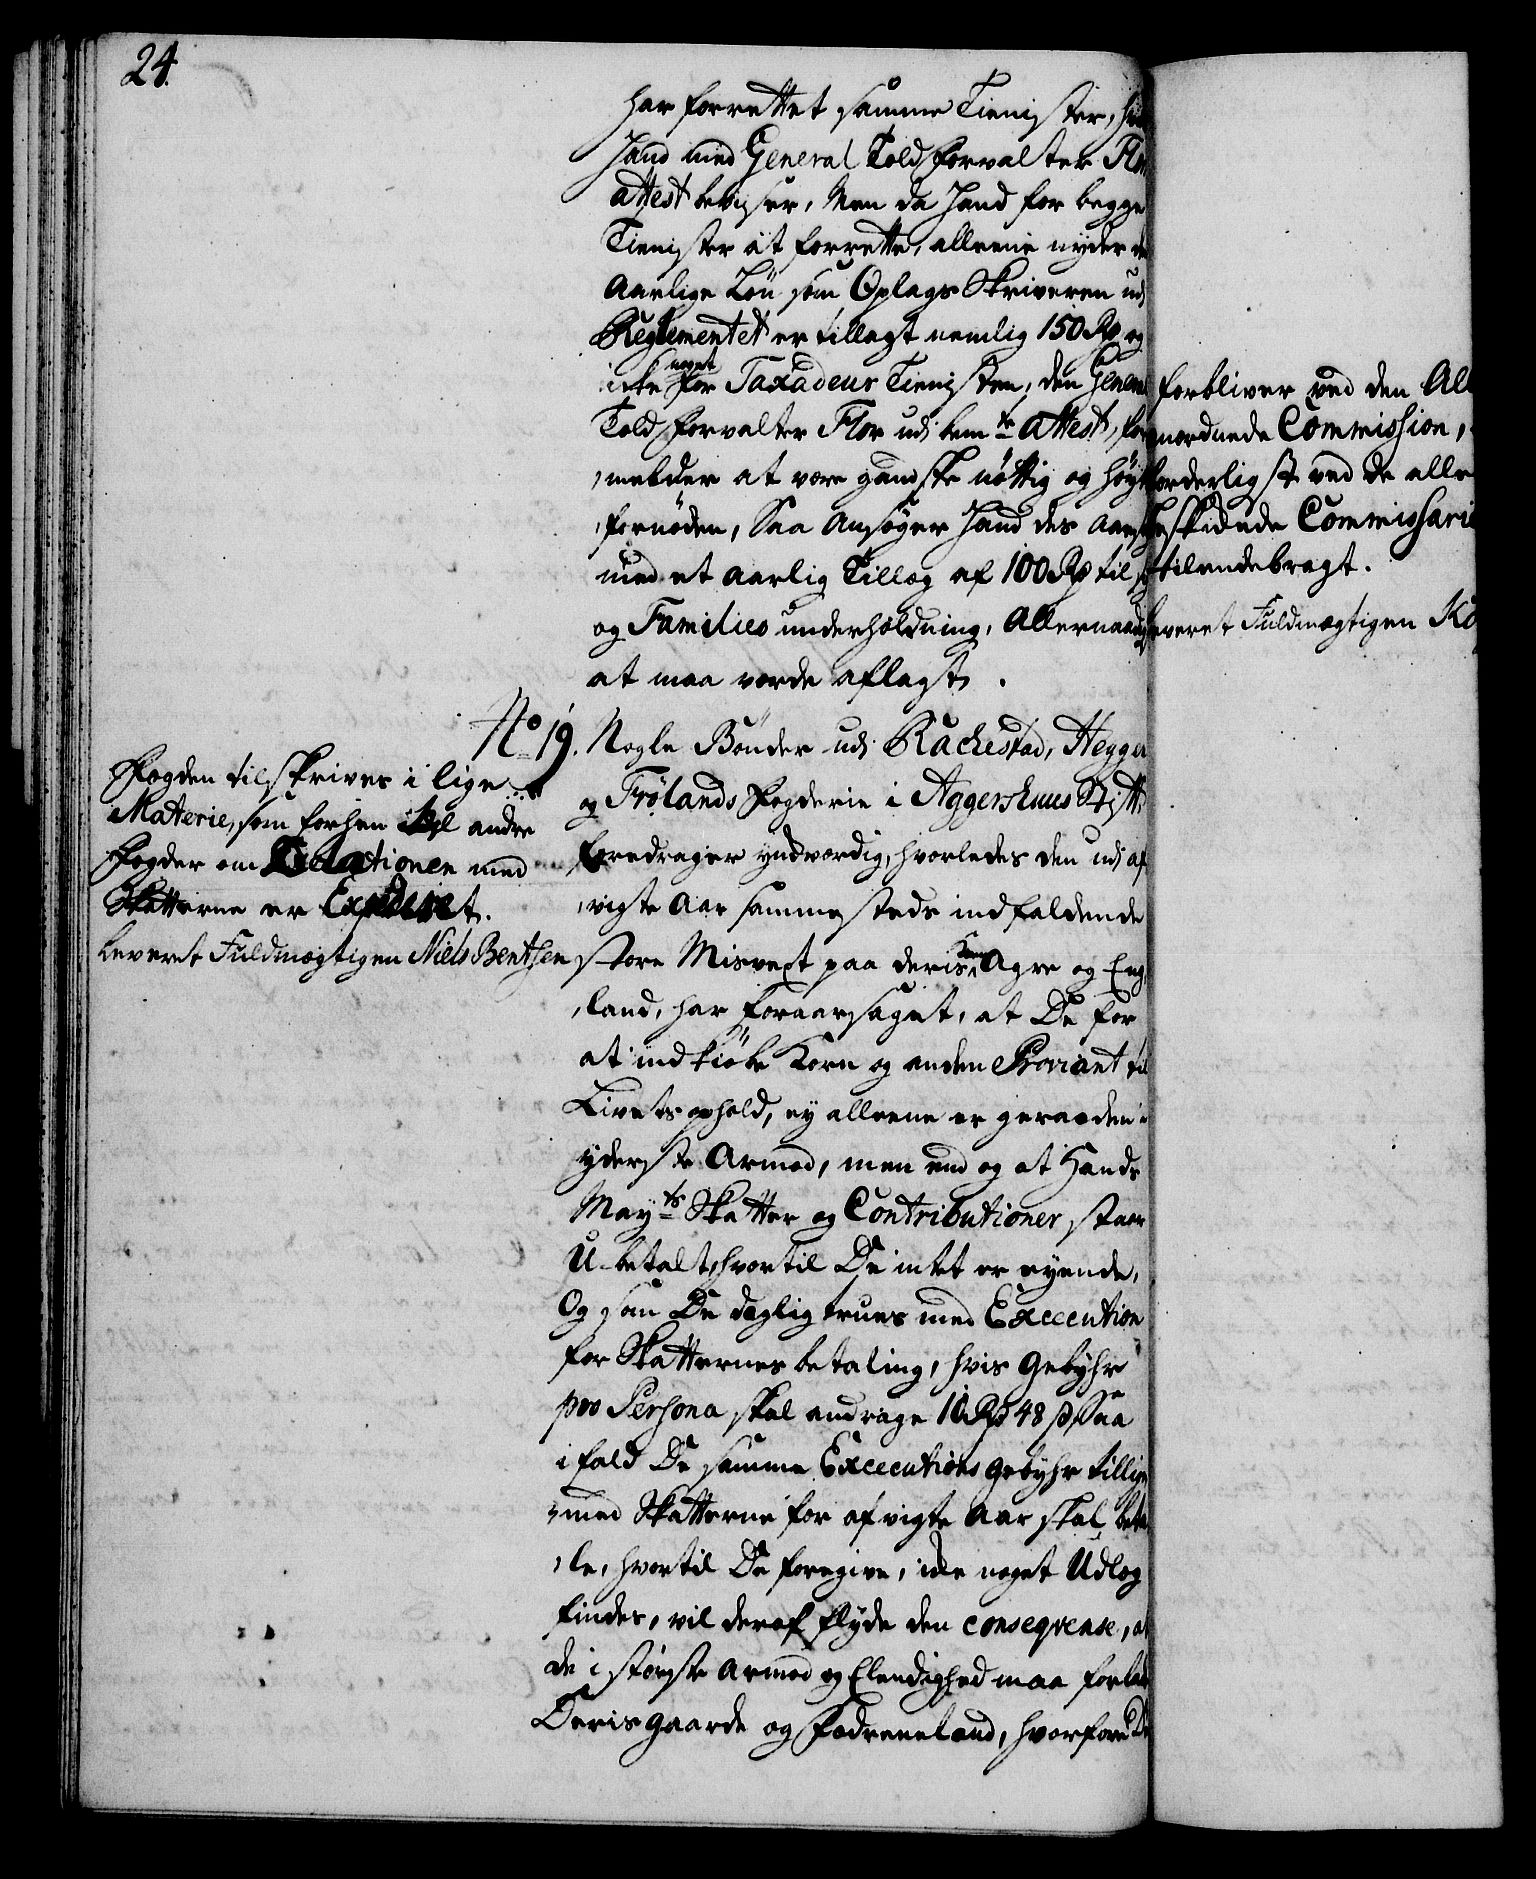 24.
har forrettet samme Tienister,
Hand med General Toldforvalter Flor
attest beviser, Men da Hand for begge
Tienister at forrette, alleene nyder
Aarlige Løn som Oplags Skriveren udj
Reglementet er tillagt nemlig 150 Rd og
icke noget for Taxadeur Tienisten, den General
Toldforvalter Flor udj bemte attest, for
melder at være gandske nøttig og høyt
fornøden, Saa Ansøger Hand
med et aarlig Tillæg af 100 Rd til
og Families underholdning, Allernaadigst
at maa vorde aflagt.
No 19. Nogle Bønder udj Rachestad, Hegger
og Frølands Fogderie i Aggershuus Stift
foredrager yndværdig, hvorledes den udj af
vigte Aar sammesteds indfaldende
store Misvext paa deris Korn Agre og Eng
land, har foraarsaget, at De for
at indkiøbe Korn og anden Proviant til
Livets ophold, ey alleene er geraaden i
yderste Armod, men end og at Hands
Mayts Skatter og Contributioner staar
U-betalt, hvortil De intet er eyende,
Og som De daglig trues med Execution
for Skatternes betaling, hvis Gebyhr
pro Persona skal andrage 10 Rd 48 s, Saa
ifald De samme Executions Gebyhr tillige
med Skatterne for afvigte Aar skal beta
le, hvortil De foregive, icke noget Udlæg
findes, vil deraf flyde den conseqvense, at
de i største Armod og Elendighed maa forlade
Deris Gaarde og Fædreneland, hvorfore De
Fogden tilskrives i lige
Materie, som forhen til andre
Fogder om Relationen med
Skatterne er Expederet.
leveret Fuldmægtigen Niels Bentsen
forbliver ved den All
anordnede Commission,
forderligst ved de aller
beskickede Commissarie
tilendebragt.
leveret Fuldmægtigen